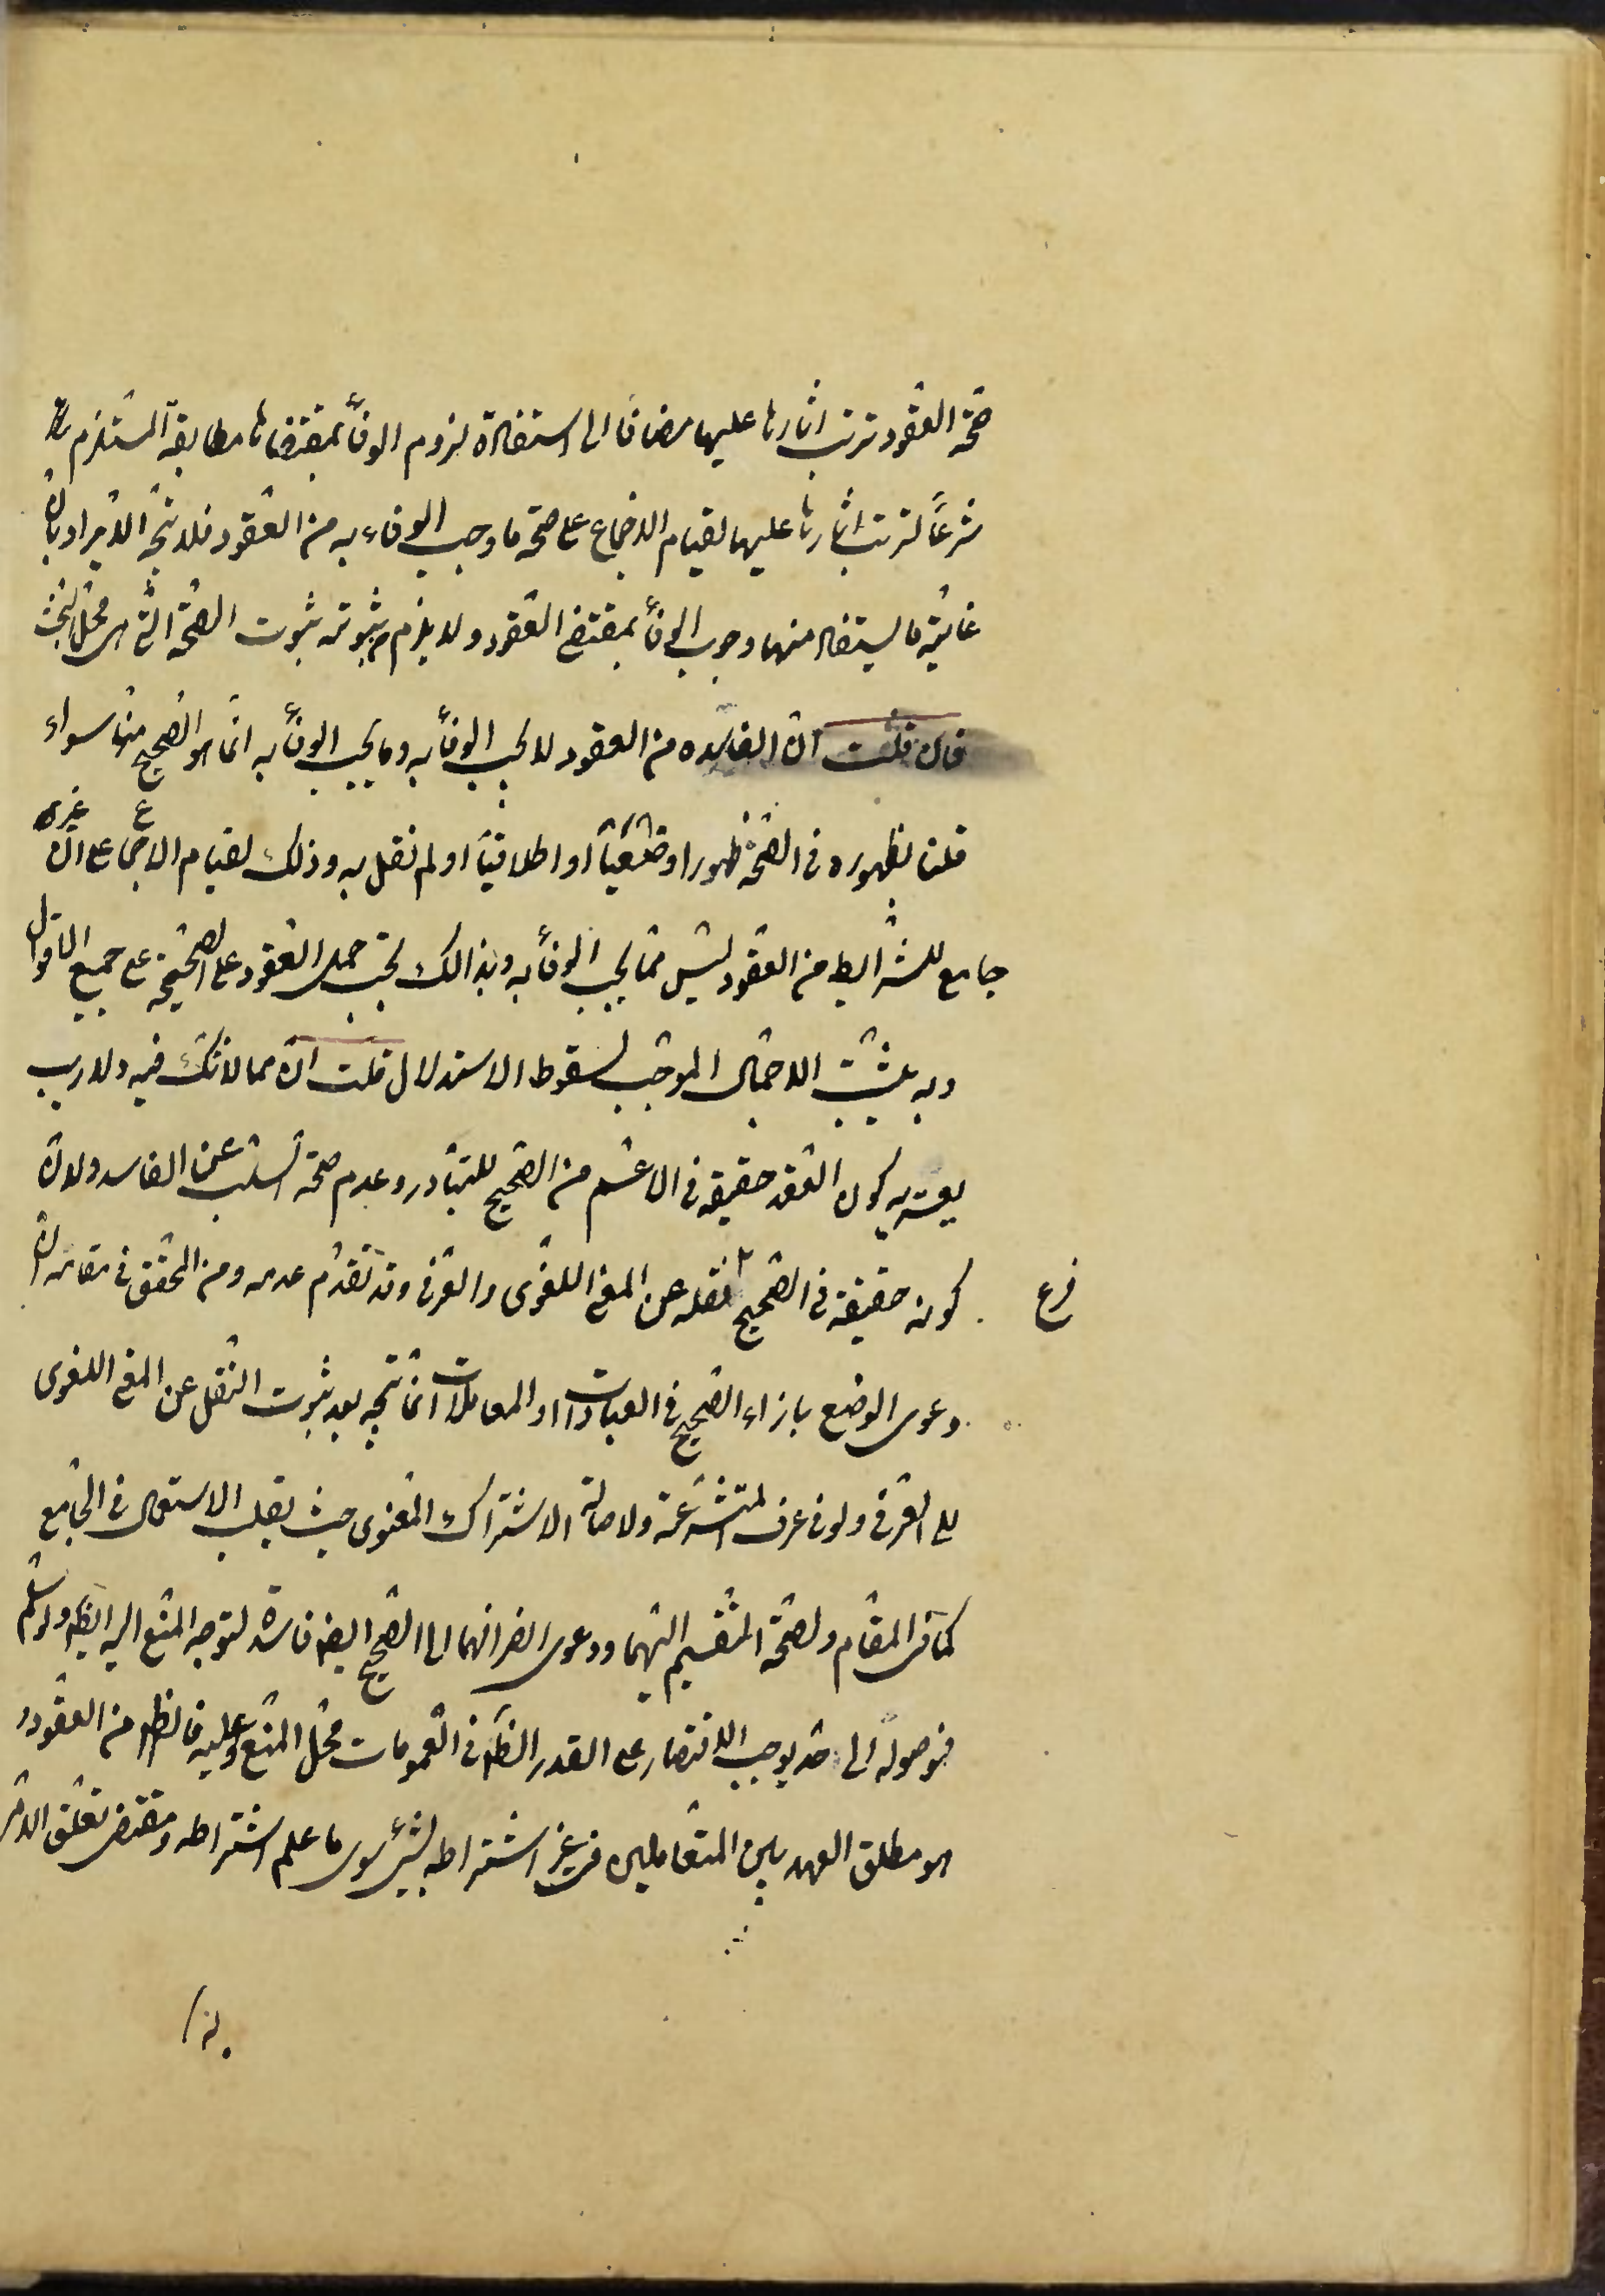 صحّة العقود ترتب اثارها عليها مضافا الى استفادة لزوم الوفاء بمقتضاها مطابقة المستلزم
شرعاً لترتب اثارها عليها لقيام الاجماع على صحّة ما وجب الوفاء به من العقود فلا يتجّه الايراد بانّ
غايته ما يستفاد منها وجوب الوفاء بمقتضى العقود ولا يلزم من ثبوته ثبوت الصّحة الّتى هى محلّ البحث
فان قلت انّ الفاسده من العقود لا يجب الوفاء به وما يجب الوفاء به انّما هو الصّحيح منها سواء
قلنا بظهوره فى الصّحة ظهورا وضعيّا او اطلاقيّا او لم نقل به وذلك لقيام الاجماع على انّ غير
جامع للشّرايط من العقود ليس ممّا يجب الوفاء به وبذالك يجب حمل العقود على الصّحيحة على جميع الاقوال
وبه يثبت الاحتمال الموجب لسقوط الاستدلال قلت انّ ممّا لا شكّ فيه ولا ريب
يعتريه كون العقد حقيقة فى الاعمّ من الصّحيح للتّبادر وعدم صحّة السّلب عن الفاسد ولانّ
كونه حقيقة فى الصّحيح فرع نقله عن المعنى اللّغوى والعرفى وقد تقدّم عدمه ومن المحقّق فى مقامه انّ
دعوى الوضع بازاء الصّحيح فى العبادات او المعاملات انّما يتّجه بعد ثبوت النّقل عن المعنى اللغوى
بل العرفى ولو فى عرف المتشرّعة ولاصالة الاشتراك المعنوى حيث يغلب الاستعمال فى الجامع
كما فى المقام ولصحّة التّقسيم اليهما ودعوى انصرافهما الى الصّحيح ايضا فاسدة لتوجه المنع اليه ايضا ولو سلّم
فوصوله الى حدّ يوجب الاقتصار على القدر الظّاهر فى العمومات محلّ المنع وعليه فالظاهر من العقود
هو مطلق العهد بين المتعاملين من غير اشتراطه بشئ سوى ما علم اشتراطه ومقتضى تعلّق الامر